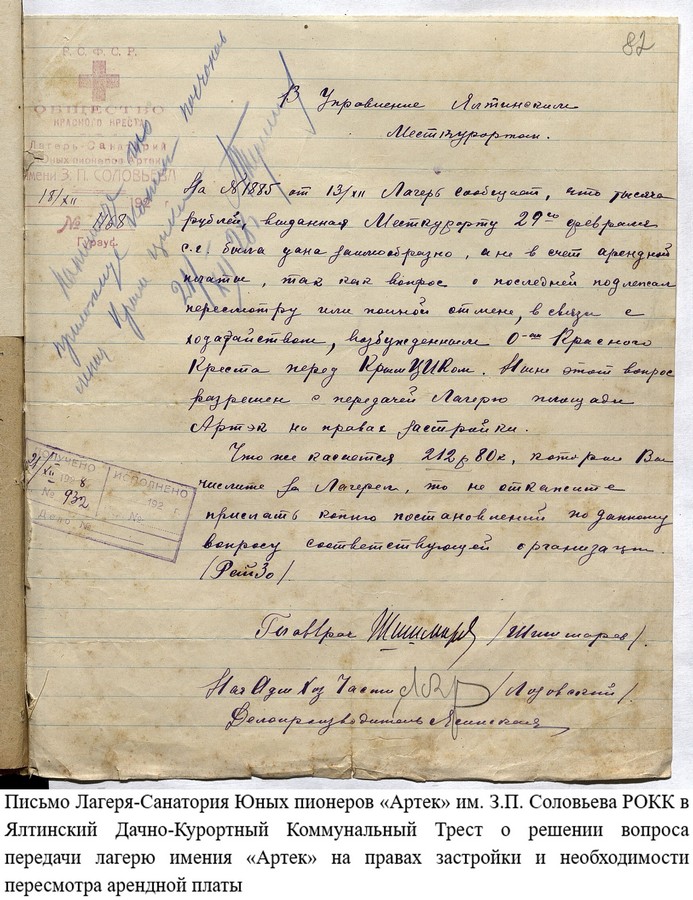 82
Р. С. Ф. С. Р.
ОБЩЕСТВО
КРАСНОГО КРЕСТА
Лагерь-Санаторий
Юных пионеров Артек
имени З. П. СОЛОВЬЕВА
18/XII 192
№ 468
Гурзуф
В Управление Ялтинским
Месткурортом.
На №1885 от 13/XII Лагерь сообщает, что тысяча
рублей, выданная Месткурорту 29го февраля
с.г. была дана заимообразно, а не в счет арендной
платы, так как вопрос о последней подлежал
пересмотру или полной отмене, в связи с
ходатайством, возбужденным О-вом Красного
Креста перед КрымЦИКом. Ныне этот вопрос
разрешен с передачей Лагерю площади
Артэк на правах застройки.
Что же касается 212 р 80 к, которые Вы
числите за Лагерем, то не откажите
прислать копию постановлений по данному
вопросу соответствующей организации
/РайЗо/.
ПОЛУЧЕНО
21/XII 1928
№ 932
Дело. №
ИСПОЛНЕНО
192 г.
№
Главврач /Шишмарев/.
НачАдмХозЧасти /Лозовский/.
Делопроизводитель Ясинская
Письмо Лагеря-Санатория Юных пионеров «Артек» им. З.П. Соловьева РОКК в
Ялтинский Дачно-Курортный Коммунальный Трест о решении вопроса
передачи лагерю имения «Артек» на правах застройки и необходимости
пересмотра арендной платы